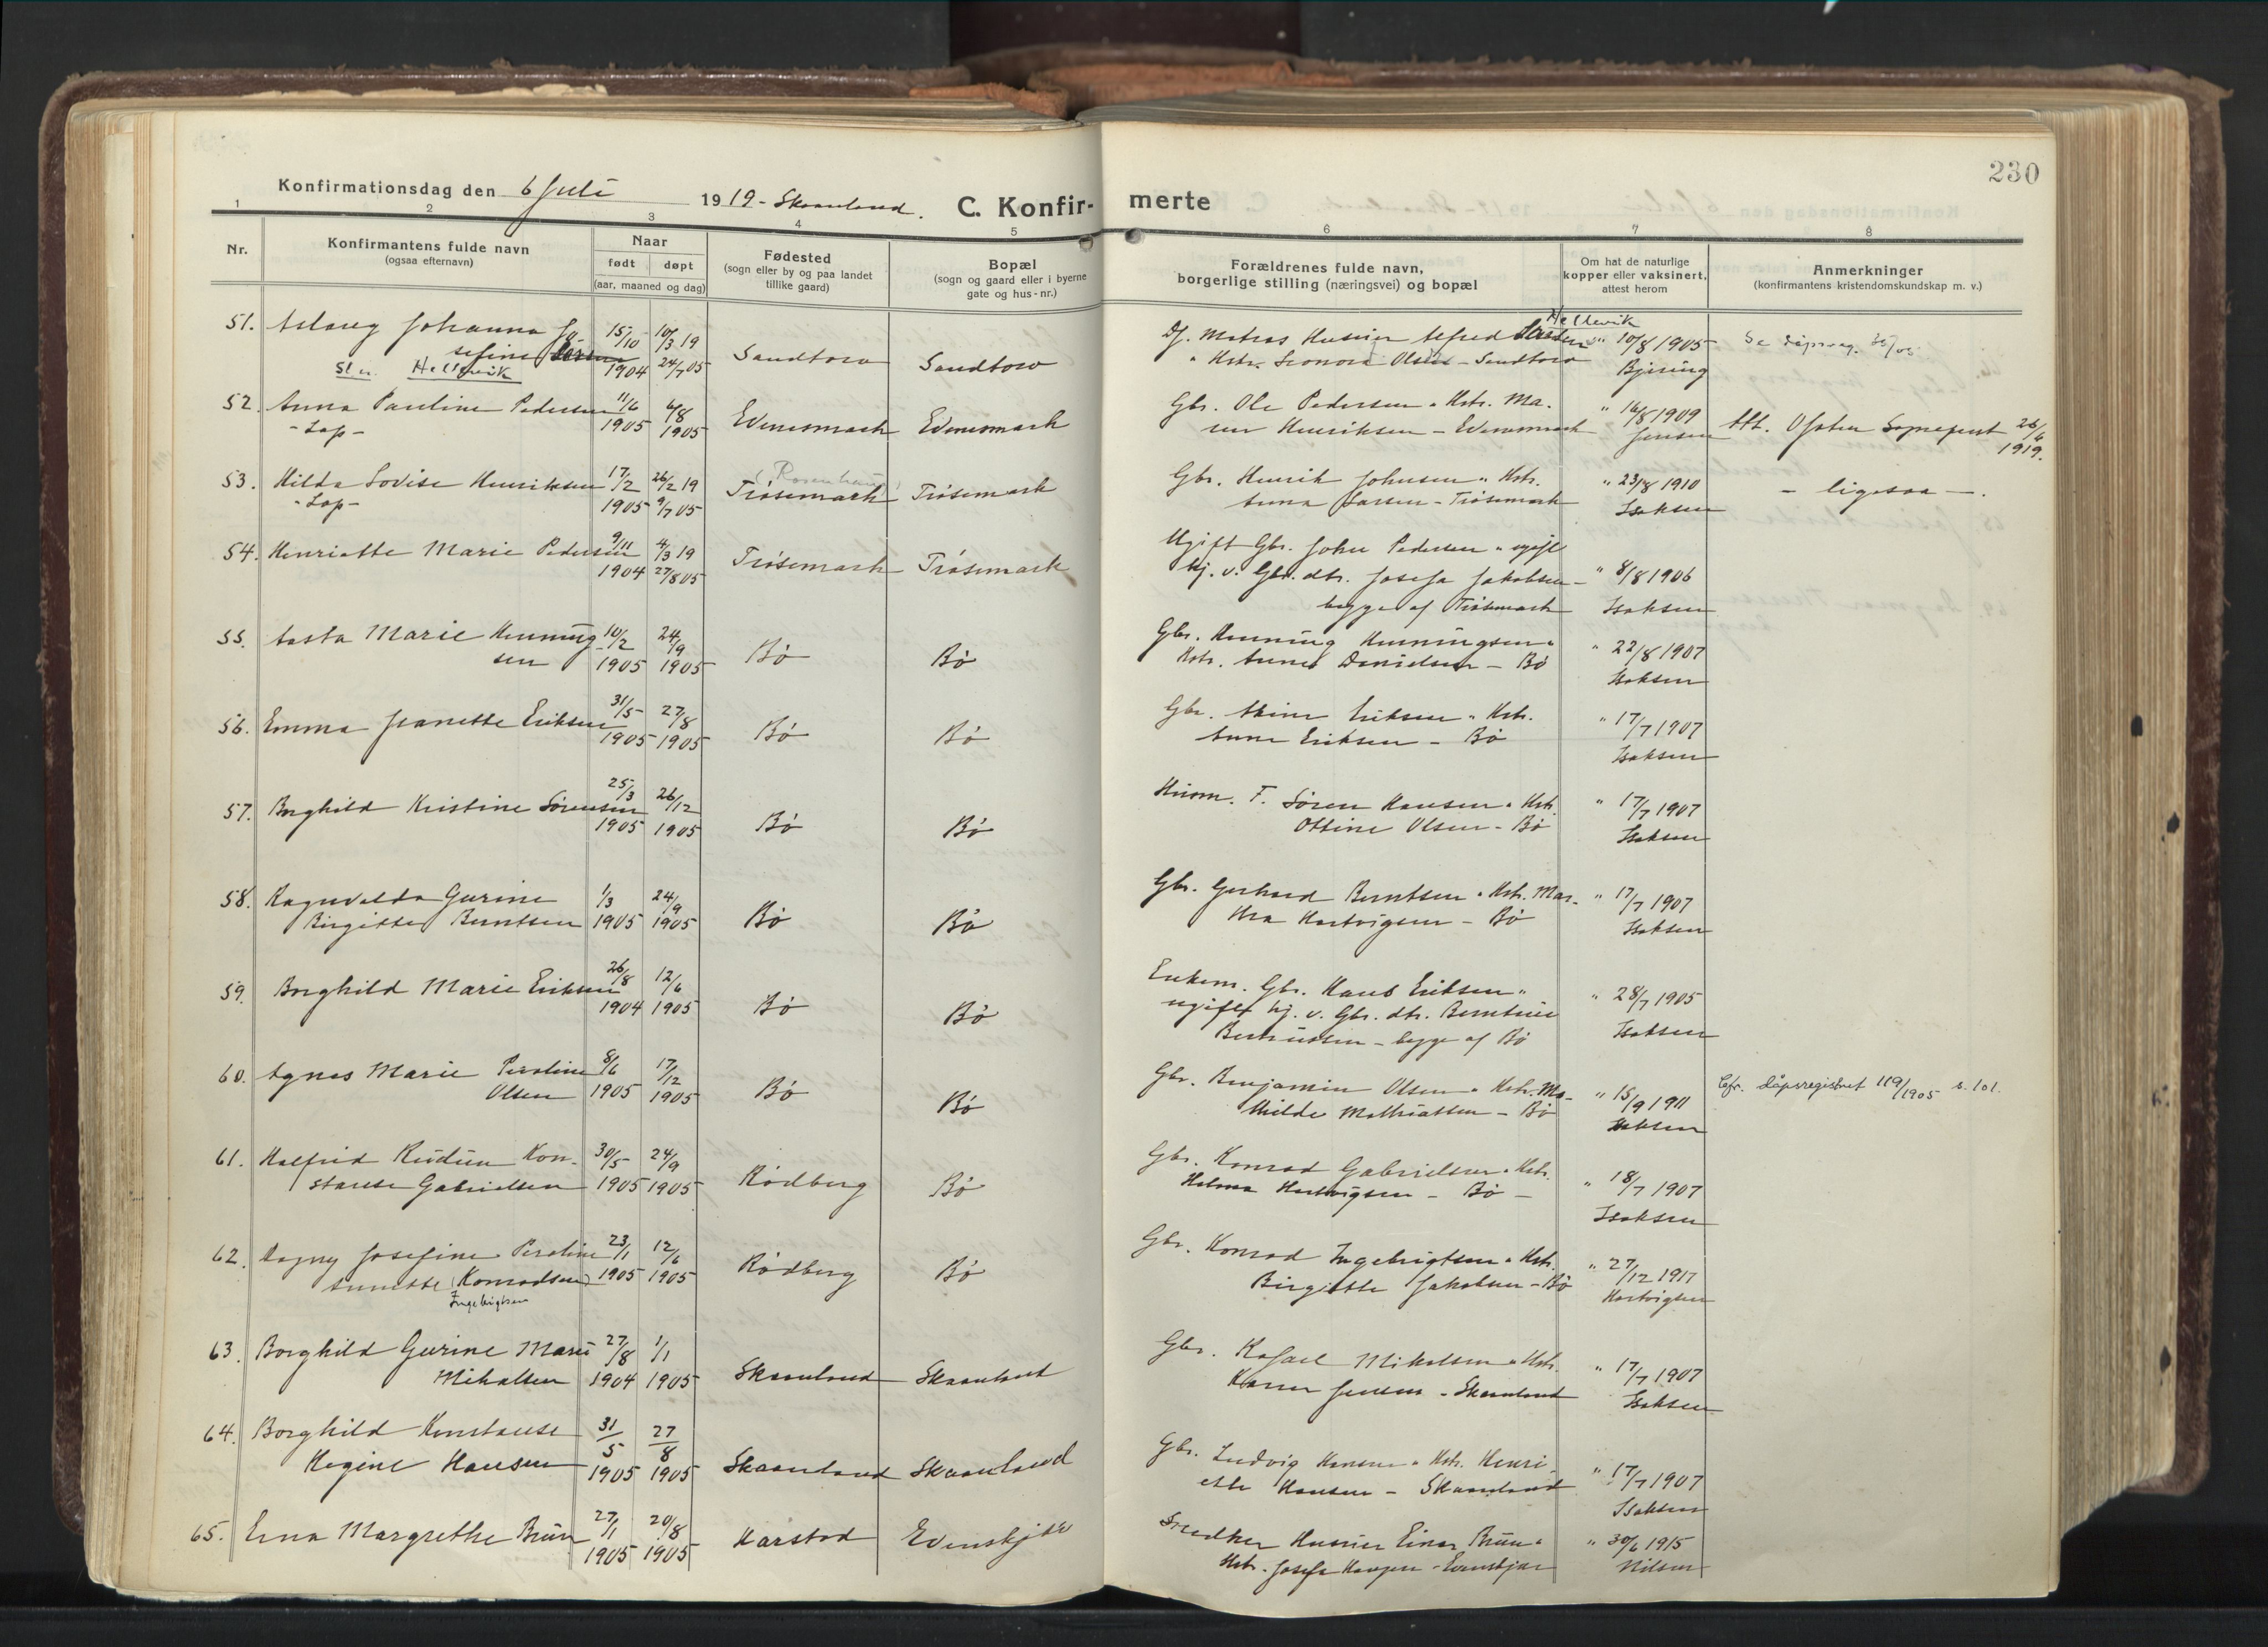 230
Konfirmationsdag den 6 Juli 1919 - Skaanland. C. Konfirmerte
1 2 3 4 5 6 7 8
Nr.
Konfirmantens fulde navn
(ogsaa efternavn)
Naar
født døpt
(aar, maaned og dag)
Fødested
(sogn eller by og paa landet
tillike gaard)
Bopæl
(sogn og gaard eller i byerne
gate og hus-nr.)
Forældrenes fulde navn,
borgerlige stilling (næringsvei) og bopæl
Om hat de naturlige
kopper eller vaksinert,
attest herom
Anmerkninger
(konfirmantens kristendomskundskap m. v.)
51. Aslaug Johanna Jo- 15/10 10/3 19 Hellevik
sefine Larsen 1904 24/7 05 Sandtorv Sandtorv
Hellevik
Df. Matros Huseier Alfred Larsen " 10/8 1905
" Hstr. Leonore Olsen - Sandtorv Bjering
52. Anna Pauline Pedersen 11/6 6/8
- Lap - 1905 1905 Evenesmark Evenesmark
Gbr. Ole Pedersen " Hstr. Ma-
ren Henriksen - Evenesmark
" 16/8 1909
Jensen
Att. Ofoten Sogneprest 26/6
1919.
53. Hilda Lovise Henriksen 17/2 26/2 19
- Lap - 1905 9/7 05 Trøsemark Trøsemark
Gbr. Henrik Johnsen " Hstr.
Anna Larsen - Trøsemark
" 23/8 1910
Isaksen
- ligesaa -.
54. Henriette Marie Pedersen 9/11 4/3 19
1904 27/8 05 Trøsemark Trøsemark
Ugift Gbr. John Pedersen " ugift
hj. v. Gbr. dtr. Josefa Jakobsen -
begge af Trøsemark
" 8/8 1906
Isaksen
55. Aasta Marie Henning- 10/2 24/9
sen 1905 1905 Bø Bø
Gbr. Henning Henningsen "
Hstr. Anne Danielsen - Bø
" 22/8 1907
Isaksen
56. Emma Jeanette Eriksen 31/5 27/8
1905 1905 Bø Bø
Eriksen " Hstr.
Anne Eriksen - Bø
" 17/7 1907
Isaksen
57. Borghild Kristine Sørensen 25/3 26/12
1905 1905 Bø Bø
Husm. F. Søren Hansen " Hstr.
Ottine Olsen - Bø
" 17/7 1907
Isaksen
58. Ragnvalda Gurine 1/3 24/9
Birgitte Berntsen 1905 1905 Bø Bø
Gbr. Gerhard Berntsen " Hstr. Mar-
tha Hartvigsen - Bø
" 17/7 1907
Isaksen
59. Borghild Marie Eriksen 26/8 12/6
1904 1905 Bø Bø
Enkem. Gbr. Hans Eriksen "
ugift hj. v. Gbr. dtr. Berntine
- begge af Bø
" 28/7 1905
Isaksen
60. Agnes Marie Peroline 8/6 17/12
Olsen 1905 1905 Bø Bø
Gbr. Benjamin Olsen " Hstr. Ma-
thilde Mathiassen - Bø
" 15/9 1911
Isaksen
Cfr. dåpsregistret 119/1905 s. 101.
61. Halfrid Kon- 30/5 24/9
stanse Gabrielsen 1905 1905 Rødberg Bø
Gbr. Konrad Gabrielsen " Hstr.
Helma Hartvigsen - Bø -
" 18/7 1907
Isaksen
62. Dagny Josefine Peroline 23/1 12/6
Annette (Konradsen) 1905 1905 Rødberg Bø
Ingebrigtsen
Gbr. Konrad Ingebrigtsen " Hstr.
Birgitte Jakobsen - Bø
" 27/12 1917
Hartvigsen
63. Borghild Gurine Marie 27/8 1/1
Mikalsen 1904 1905 Skaanland Skaanland
Gbr. Rafael Mikalsen " Hstr.
Karen Jensen - Skaanland
" 17/7 1907
Isaksen
64. Borghild Konstanse 31/5 27/8
Regine Hansen 1905 1905 Skaanland Skaanland
Gbr. Ludvig Hansen " Hstr. Henri-
ette Hansen - Skaanland
" 17/7 1907
Isaksen
65. Erna Margrethe Brun 27/1 20/8
1905 1905 Harstad Evenskjær
Snedker Huseier Einar Brun "
Hstr. Josefa - Evenskjær
" 30/6 1915
Nilsen